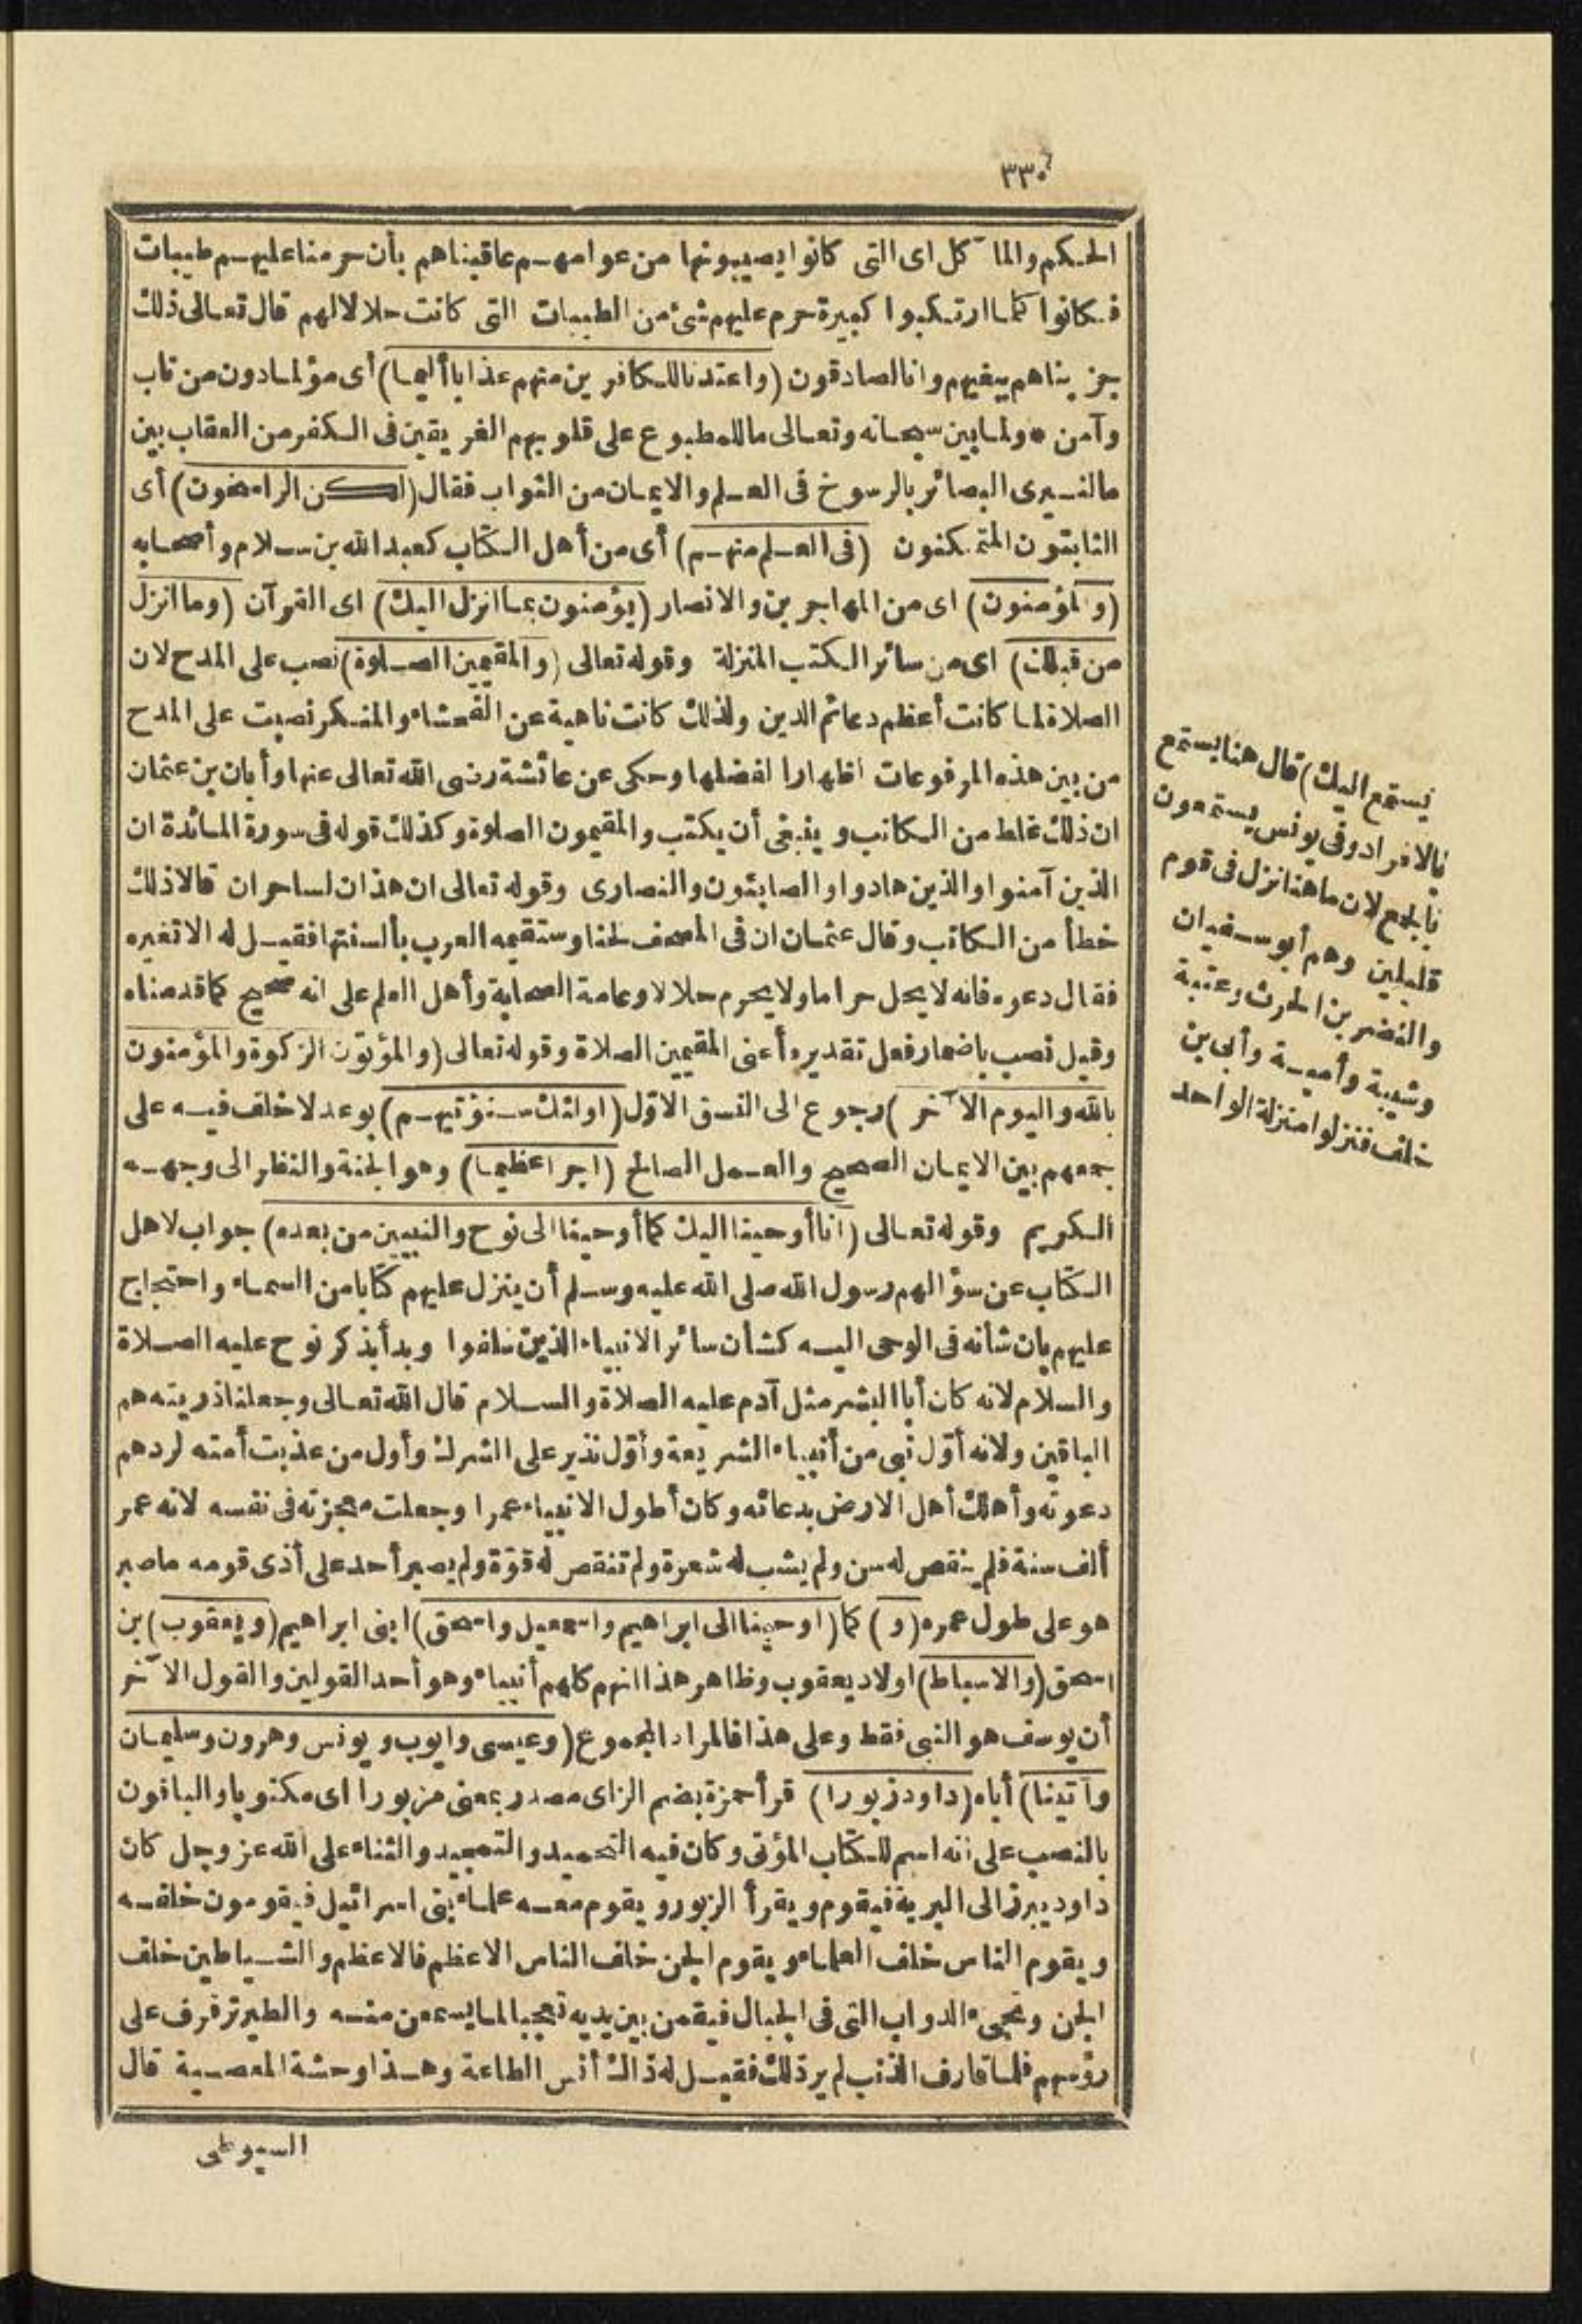 ٣٣٠
الحكم والمآكل اى التى كانوا يصيبونها من عوامهم عاقبناهم بأن حرمنا عليهم طيبات
فكانوا كلما ارتكبوا كبيرة حرم عليهم شئ من الطيبات التى كانت حلالا لهم قال تعالى ذلك
جزيناهم ببغيهم وانا لصادقون (واعتدنا للكافرين منهم عذابا أليما) أى مؤلما دون من تاب
وآمن * ولما بين سبحانه وتعالى ما للمطبوع على قلوبهم الغريقين فى الكفر من العقاب بين
ما لنيرى البصائر بالرسوخ فى العلم والايمان من الثواب فقال (لكن الراسخون) أى
الثابتون المتمكنون (فى العلم منهم) أى من أهل الكتاب كعبد الله بن سلام وأصحابه
(والمؤمنون) اى من المهاجرين والانصار (يؤمنون بما انزل اليك) اى القرآن (وما انزل
من قبلك) اى من سائر الكتب المنزلة وقوله تعالى (والمقيمين الصلوة) نصب على المدح لان
الصلاة لما كانت أعظم دعائم الدين ولذلك كانت ناهية عن الفحشاء والمنكر نصبت على المدح
من بين هذه المرفوعات اظهارا لفضلها وحكى عن عائشة رضى الله تعالى عنها وأبان بن عثمان
ان ذلك غلط من الكاتب وينبغى أن يكتب والمقيمون الصلوة وكذلك قوله فى سورة المائدة ان
الذين آمنوا والذين هادوا والصابئون والنصارى وقوله تعالى ان هذان لساحران قالا ذلك
خطأ من الكاتب وقال عثمان ان فى المصحف لحنا وستقيمه العرب بألسنتها فقيل له الا تغيره
فقال دعوه فانه لا يحل حراما ولا يحرم حلالا وعامة الصحابة وأهل العلم على انه صحيح كما قدمناه
وقيل نصب باضمار فعل تقديره أعنى المقيمين الصلاة وقوله تعالى (والمؤتون الزكوة والمؤمنون
بالله واليوم الآخر) رجوع الى النسق الاول (اولئك سنؤتيهم) بوعد لا خلف فيه على
جمعهم بين الايمان الصحيح والعمل الصالح (اجرا عظيما) وهو الجنة والنظر الى وجهه
الكريم وقوله تعالى (انا أوحينا اليك كما أوحينا الى نوح والنبيين من بعده) جواب لاهل
الكتاب عن سؤالهم رسول الله صلى الله عليه وسلم أن ينزل عليهم كتابا من السماء واحتجاج
عليهم بان شأنه فى الوحى اليه كشأن سائر الانبياء الذين سلفوا وبدأ بذكر نوح عليه الصلاة
والسلام لانه كان أبا البشر مثل آدم عليه الصلاة والسلام قال الله تعالى وجعلنا ذريته هم
الباقين ولانه أوّل نبى من أنبياء الشريعة وأوّل نذير على الشرك وأول من عذبت أمته لردهم
دعوته وأهلك أهل الارض بدعائه وكان أطول الانبياء عمرا وجعلت معجزته فى نفسه لانه عمر
ألف سنة فلم ينقص له سن ولم يشب له شعرة ولم تنقص له قوّة ولم يصبر أحد على أذى قومه ما صبر
هو على طول عمره (و) كما (اوحينا الى ابراهيم واسمعيل واسحق) ابنى ابراهيم (ويعقوب) بن
اسحق (والاسباط) اولاد يعقوب وظاهر هذا انهم كلهم أنبياء وهو أحد القولين والقول الآخر
أن يوسف هو النبى فقط وعلى هذا فالمراد المجموع (وعيسى وايوب ويونس وهرون وسليمان
وآتينا) أباه (داود زبورا) قرأ حمزة بضم الزاى مصدر بمعنى مزبورا اى مكتوبا والباقون
بالنصب على انه اسم للكتاب المؤتى وكان فيه التحميد والتمجيد والثناء على الله عز وجل كان
داود يبرز الى البرية فيقوم ويقرأ الزبور ويقوم معه علماء بنى اسرائيل فيقومون خلفه
ويقوم الناس خلف العلماء ويقوم الجن خلف الناس الاعظم فالاعظم والشياطين خلف
الجن وتجىء الدواب التى فى الجبال فيقمن بين يديه تعجبا لما يسمعن منه والطير ترفرف على
رؤسهم فلما قارف الذنب لم ير ذلك فقيل له ذاك أنس الطاعة وهذا وحشة المعصية قال
السيوطى
يستمع اليك) قال هنا يستمع
بالافراد وفى يونس يستمعون
بالجمع لان ما هنا نزل فى قوم
قليلين وهم أبو سفيان
والنضر بن الحرث وعتبة
وشيبة وأمية وأبى بن
خلف فنزلوا منزلة الواحد